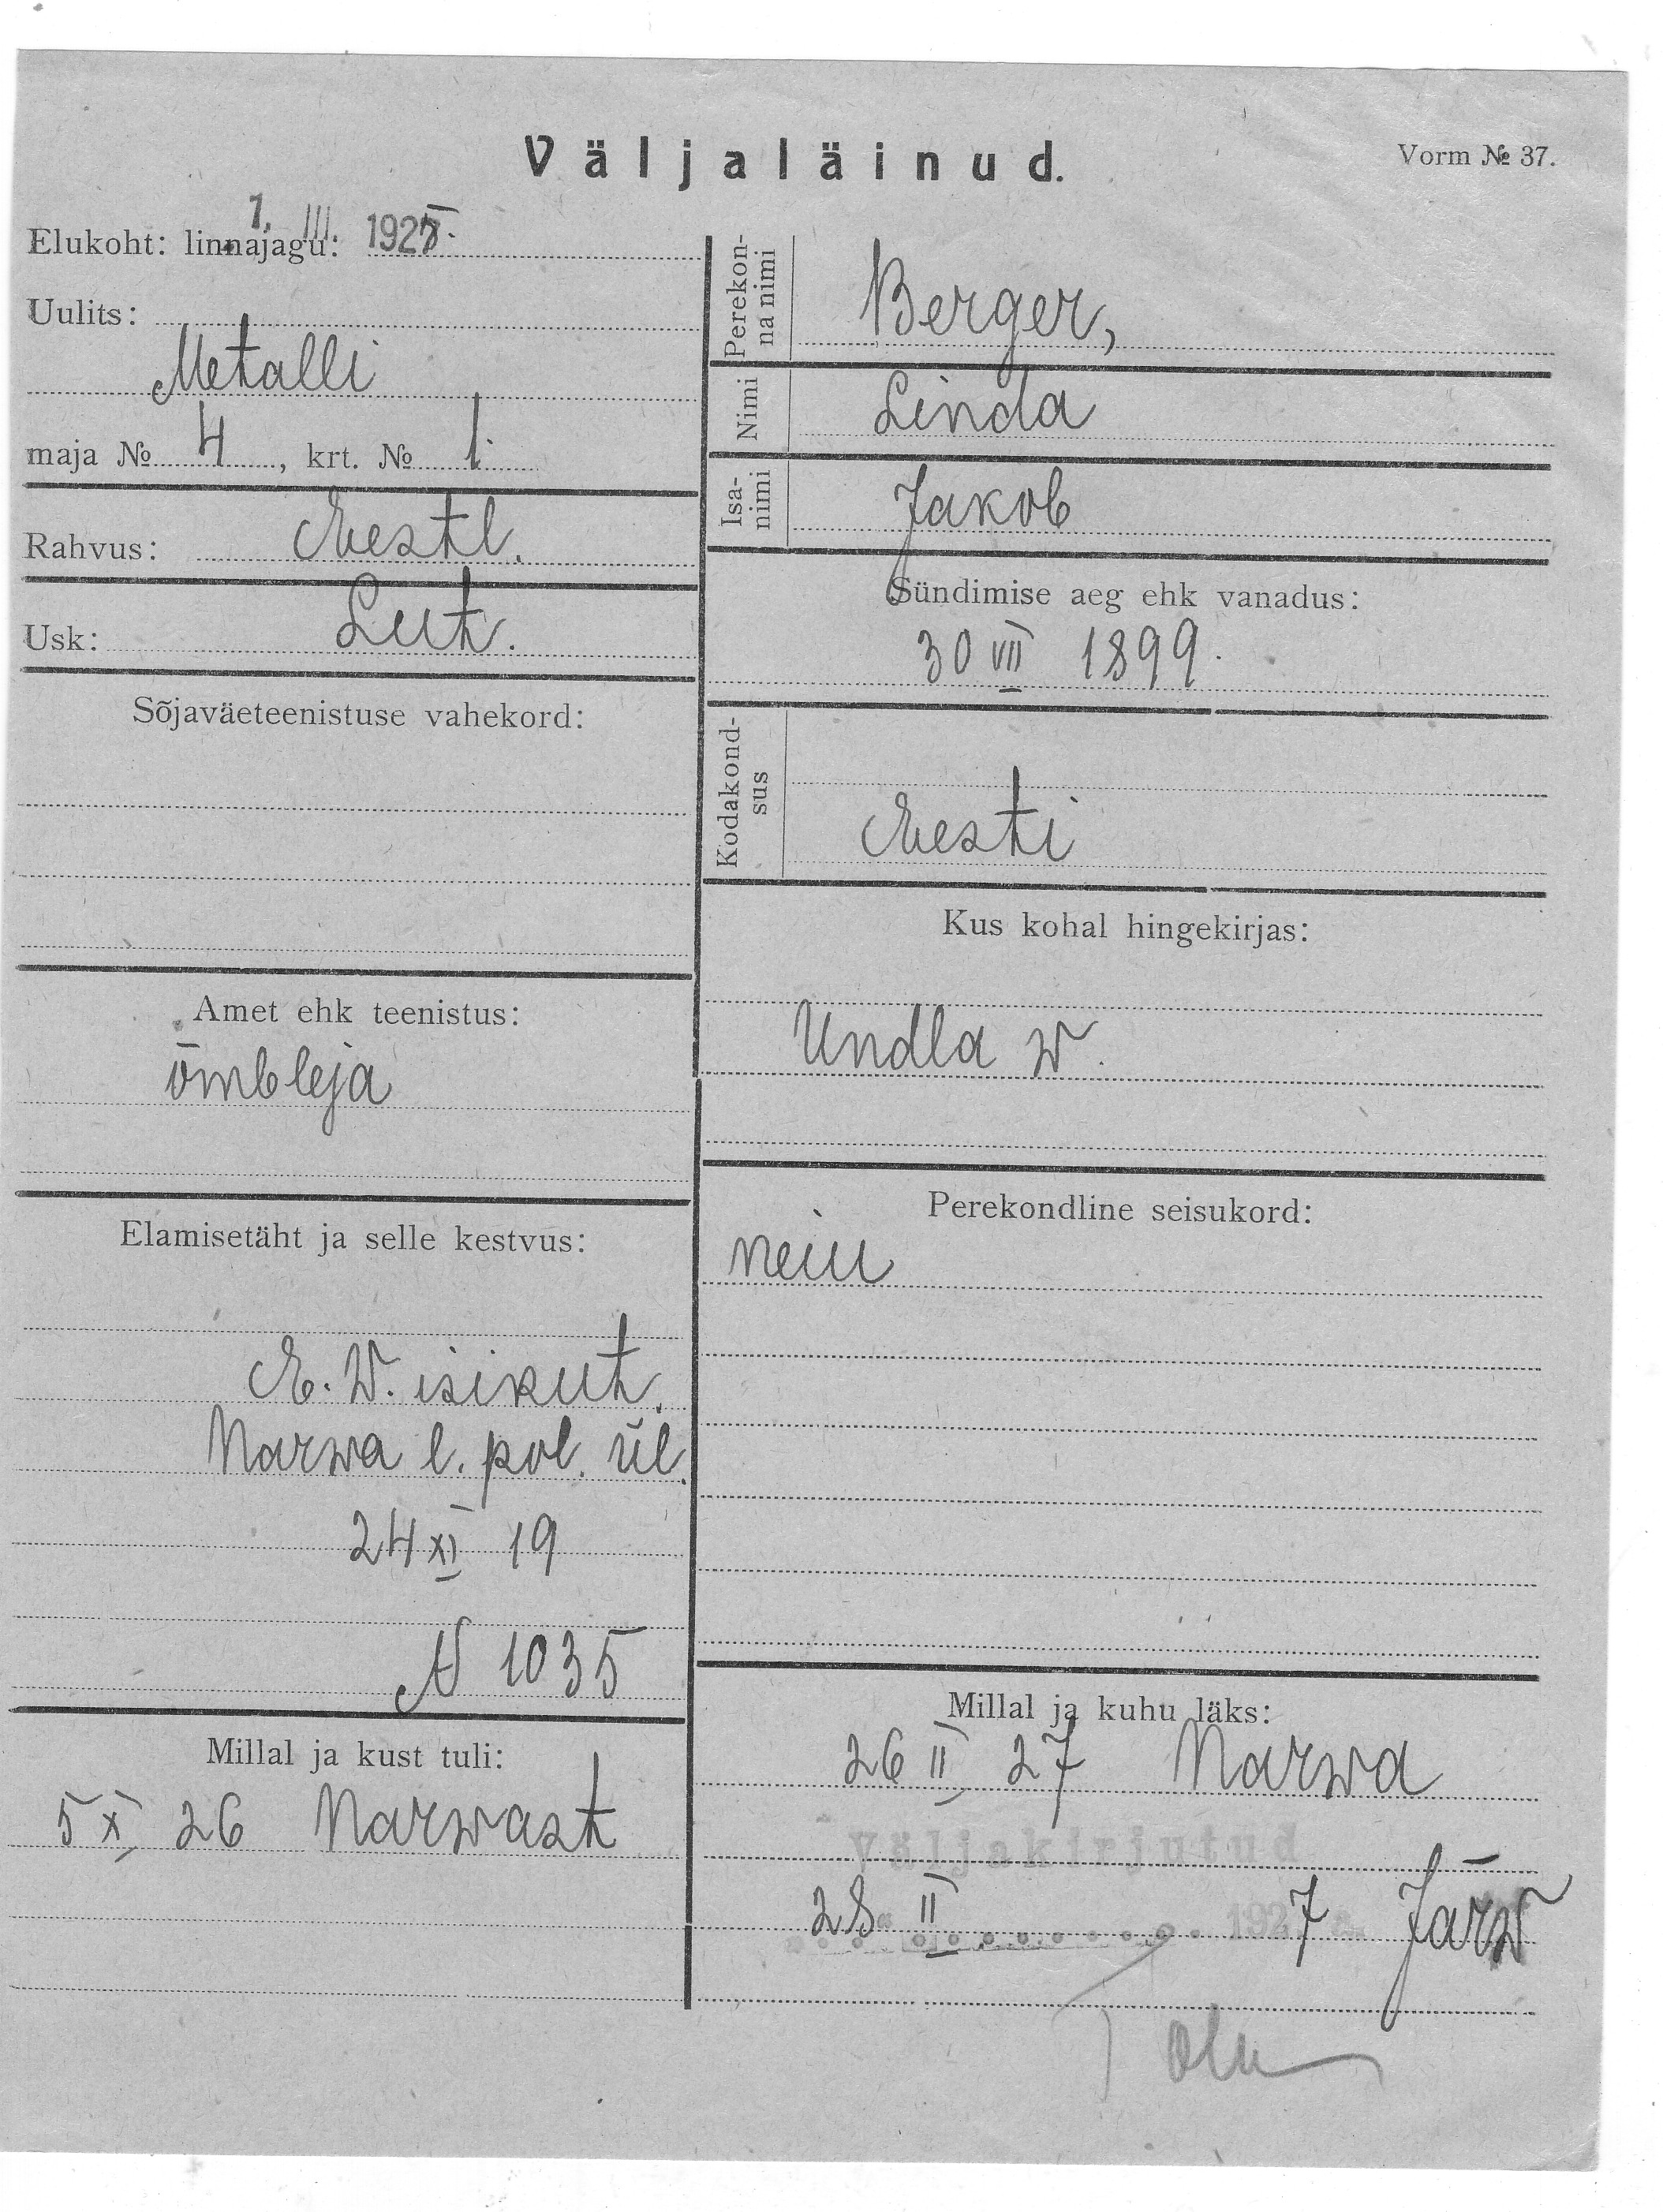 Väljaläinud.
Vorm № 37.
1. III. 1927.
Elukoht: linnajagu:
Uulits:
Metalli
maja № 4, krt. № 1.
Rahvus: Eestl.
Usk: Lut.
Sõjaväeteenistuse vahekord:
Amet ehk teenistus:
õmbleja
Elamisetäht ja selle kestvus:
E. W. isikut.
Narwa l. pol. ül.
24 XI 19
N 1035
Millal ja kust tuli:
5 X 26 Narwast
Perekon-
na nimi
Berger,
Nimi
Linda
Isa-
nimi
Jakob
Sündimise aeg ehk vanadus:
30 VII 1899.
Kodakond-
sus
Eesti
Kus kohal hingekirjas:
Undla w.
Perekondline seisukord:
neiu
Millal ja kuhu läks:
26 II 27 Narwa
Väljakirjutud
28 II 1927 Järw